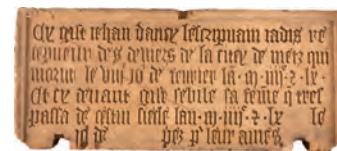 Cy gist Jehan dancy lescripvain jadis re
cepveur des deniers de la citey de metz qui
morut le viij jo de fevrier lã . m . iiijc . z . lx .
Et cy devant gist sebile sa feme q tres
passa de cestui siecle lan . m . iiijc . z . lx le
jo de pez pr leur ames